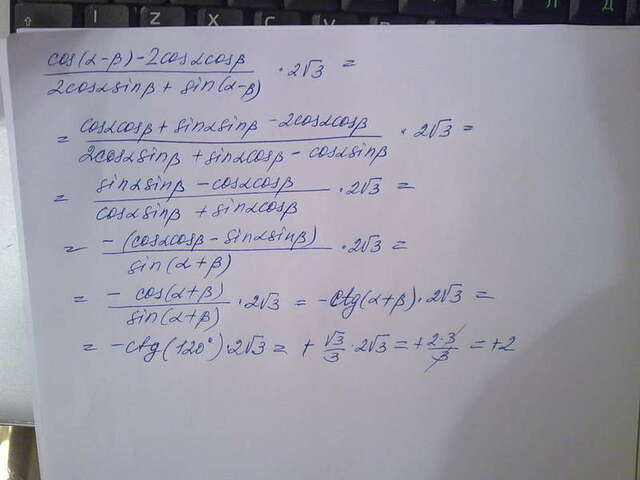 I Z X Л Д
(cos(α-β) - 2cosαcosβ)/(2cosαsinβ + sin(α-β)) · 2√3 =
= (cosαcosβ + sinαsinβ - 2cosαcosβ)/(2cosαsinβ + sinαcosβ - cosαsinβ) · 2√3 =
= (sinαsinβ - cosαcosβ)/(cosαsinβ + sinαcosβ) · 2√3 =
= (-(cosαcosβ - sinαsinβ))/(sin(α+β)) · 2√3 =
= (-cos(α+β))/(sin(α+β)) · 2√3 = -ctg(α+β) · 2√3 =
= -ctg(120°) · 2√3 = +√3/3 · 2√3 = +(2·3)/3 = +2